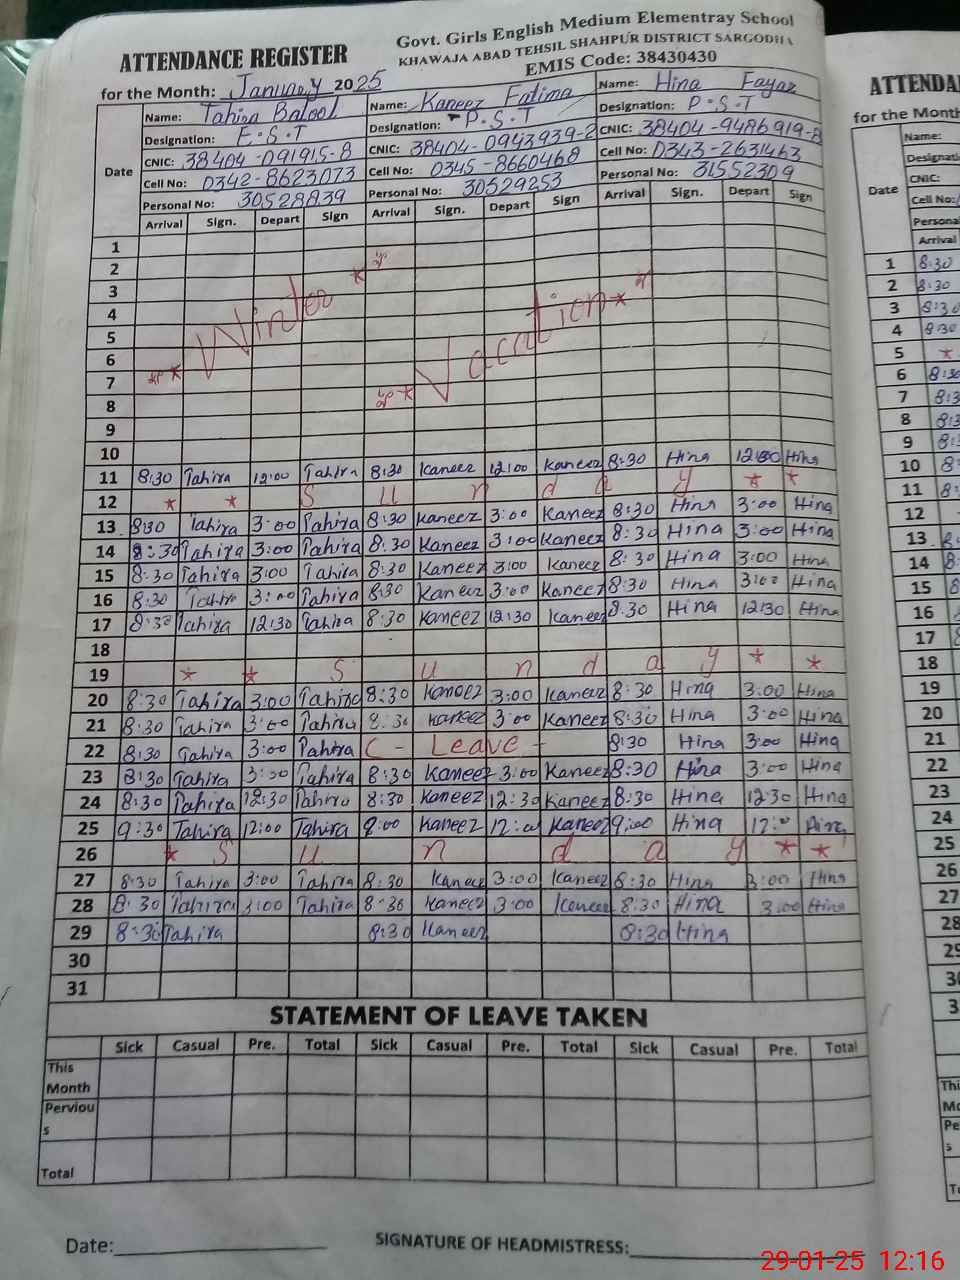 ATTENDANCE REGISTER
Govt. Girls English Medium Elementray School
KHAWAJA ABAD TEHSIL SHAHPUR DISTRICT SARGODHA
EMIS Code: 38430430
for the Month: January 2025
Date
Name: Tahira Batool Name: Kaneez Fatima Name: Hina Fayaz
Designation: E.S.T Designation: P.S.T Designation: P.S.T
CNIC: 38404-091915-8 CNIC: 38404-0943939-2 CNIC: 38404-9486919-8
Cell No: 0342-8623073 Cell No: 0345-8660468 Cell No: 0343-2631463
Personal No: 30528839 Personal No: 30529253 Personal No: 31552309
Arrival Sign. Depart Sign Arrival Sign. Depart Sign Arrival Sign. Depart Sign
1
2
3
4
5
6
7
8
9
10
Winter Vacation
11 8:30 Tahira 12:00 Tahira 8:30 Kaneez 12:00 Kaneez 8:30 Hina 12:00 Hina
12 * * S u n d a y * *
13 8:30 Tahira 3:00 Tahira 8:30 Kaneez 3:00 Kaneez 8:30 Hina 3:00 Hina
14 8:30 Tahira 3:00 Tahira 8:30 Kaneez 3:00 Kaneez 8:30 Hina 3:00 Hina
15 8:30 Tahira 3:00 Tahira 8:30 Kaneez 3:00 Kaneez 8:30 Hina 3:00 Hina
16 8:30 Tahira 3:00 Tahira 8:30 Kaneez 3:00 Kaneez 8:30 Hina 3:00 Hina
17 8:30 Tahira 12:30 Tahira 8:30 Kaneez 12:30 Kaneez 8:30 Hina 12:30 Hina
18
19 * * S u n d a y * *
20 8:30 Tahira 3:00 Tahira 8:30 Kaneez 3:00 Kaneez 8:30 Hina 3:00 Hina
21 8:30 Tahira 3:00 Tahira 8:30 Kaneez 3:00 Kaneez 8:30 Hina 3:00 Hina
22 8:30 Tahira 3:00 Tahira C - Leave - 8:30 Hina 3:00 Hina
23 8:30 Tahira 3:00 Tahira 8:30 Kaneez 3:00 Kaneez 8:30 Hina 3:00 Hina
24 8:30 Tahira 12:30 Tahira 8:30 Kaneez 12:30 Kaneez 8:30 Hina 12:30 Hina
25 9:30 Tahira 12:00 Tahira 8:00 Kaneez 12:00 Kaneez 9:00 Hina 12:0 Hina
26 * S u n d a y * *
27 8:30 Tahira 3:00 Tahira 8:30 Kaneez 3:00 Kaneez 8:30 Hina 3:00 Hina
28 8:30 Tahira 3:00 Tahira 8:30 Kaneez 3:00 Kaneez 8:30 Hina 3:00 Hina
29 8:30 Tahira 8:30 Kaneez 8:30 Hina
30
31
STATEMENT OF LEAVE TAKEN
Sick Casual Pre. Total Sick Casual Pre. Total Sick Casual Pre. Total
This
Month
Perviou
s
Total
Date:
SIGNATURE OF HEADMISTRESS:
ATTENDA
for the Month
Date
Name:
Designati
CNIC:
Cell No:
Persona
Arrival
1 8:30
2 8:30
3 8:30
4 8:30
5 *
6 8:30
7 8:3
8 8:3
9 8:
10 8:
11 8:
12
13
14 8:
15 8
16
17
18
19
20
21
22
23
24
25
26
27
28
29
3
3
Thi
Mo
Pe
s
29-01-25 12:16